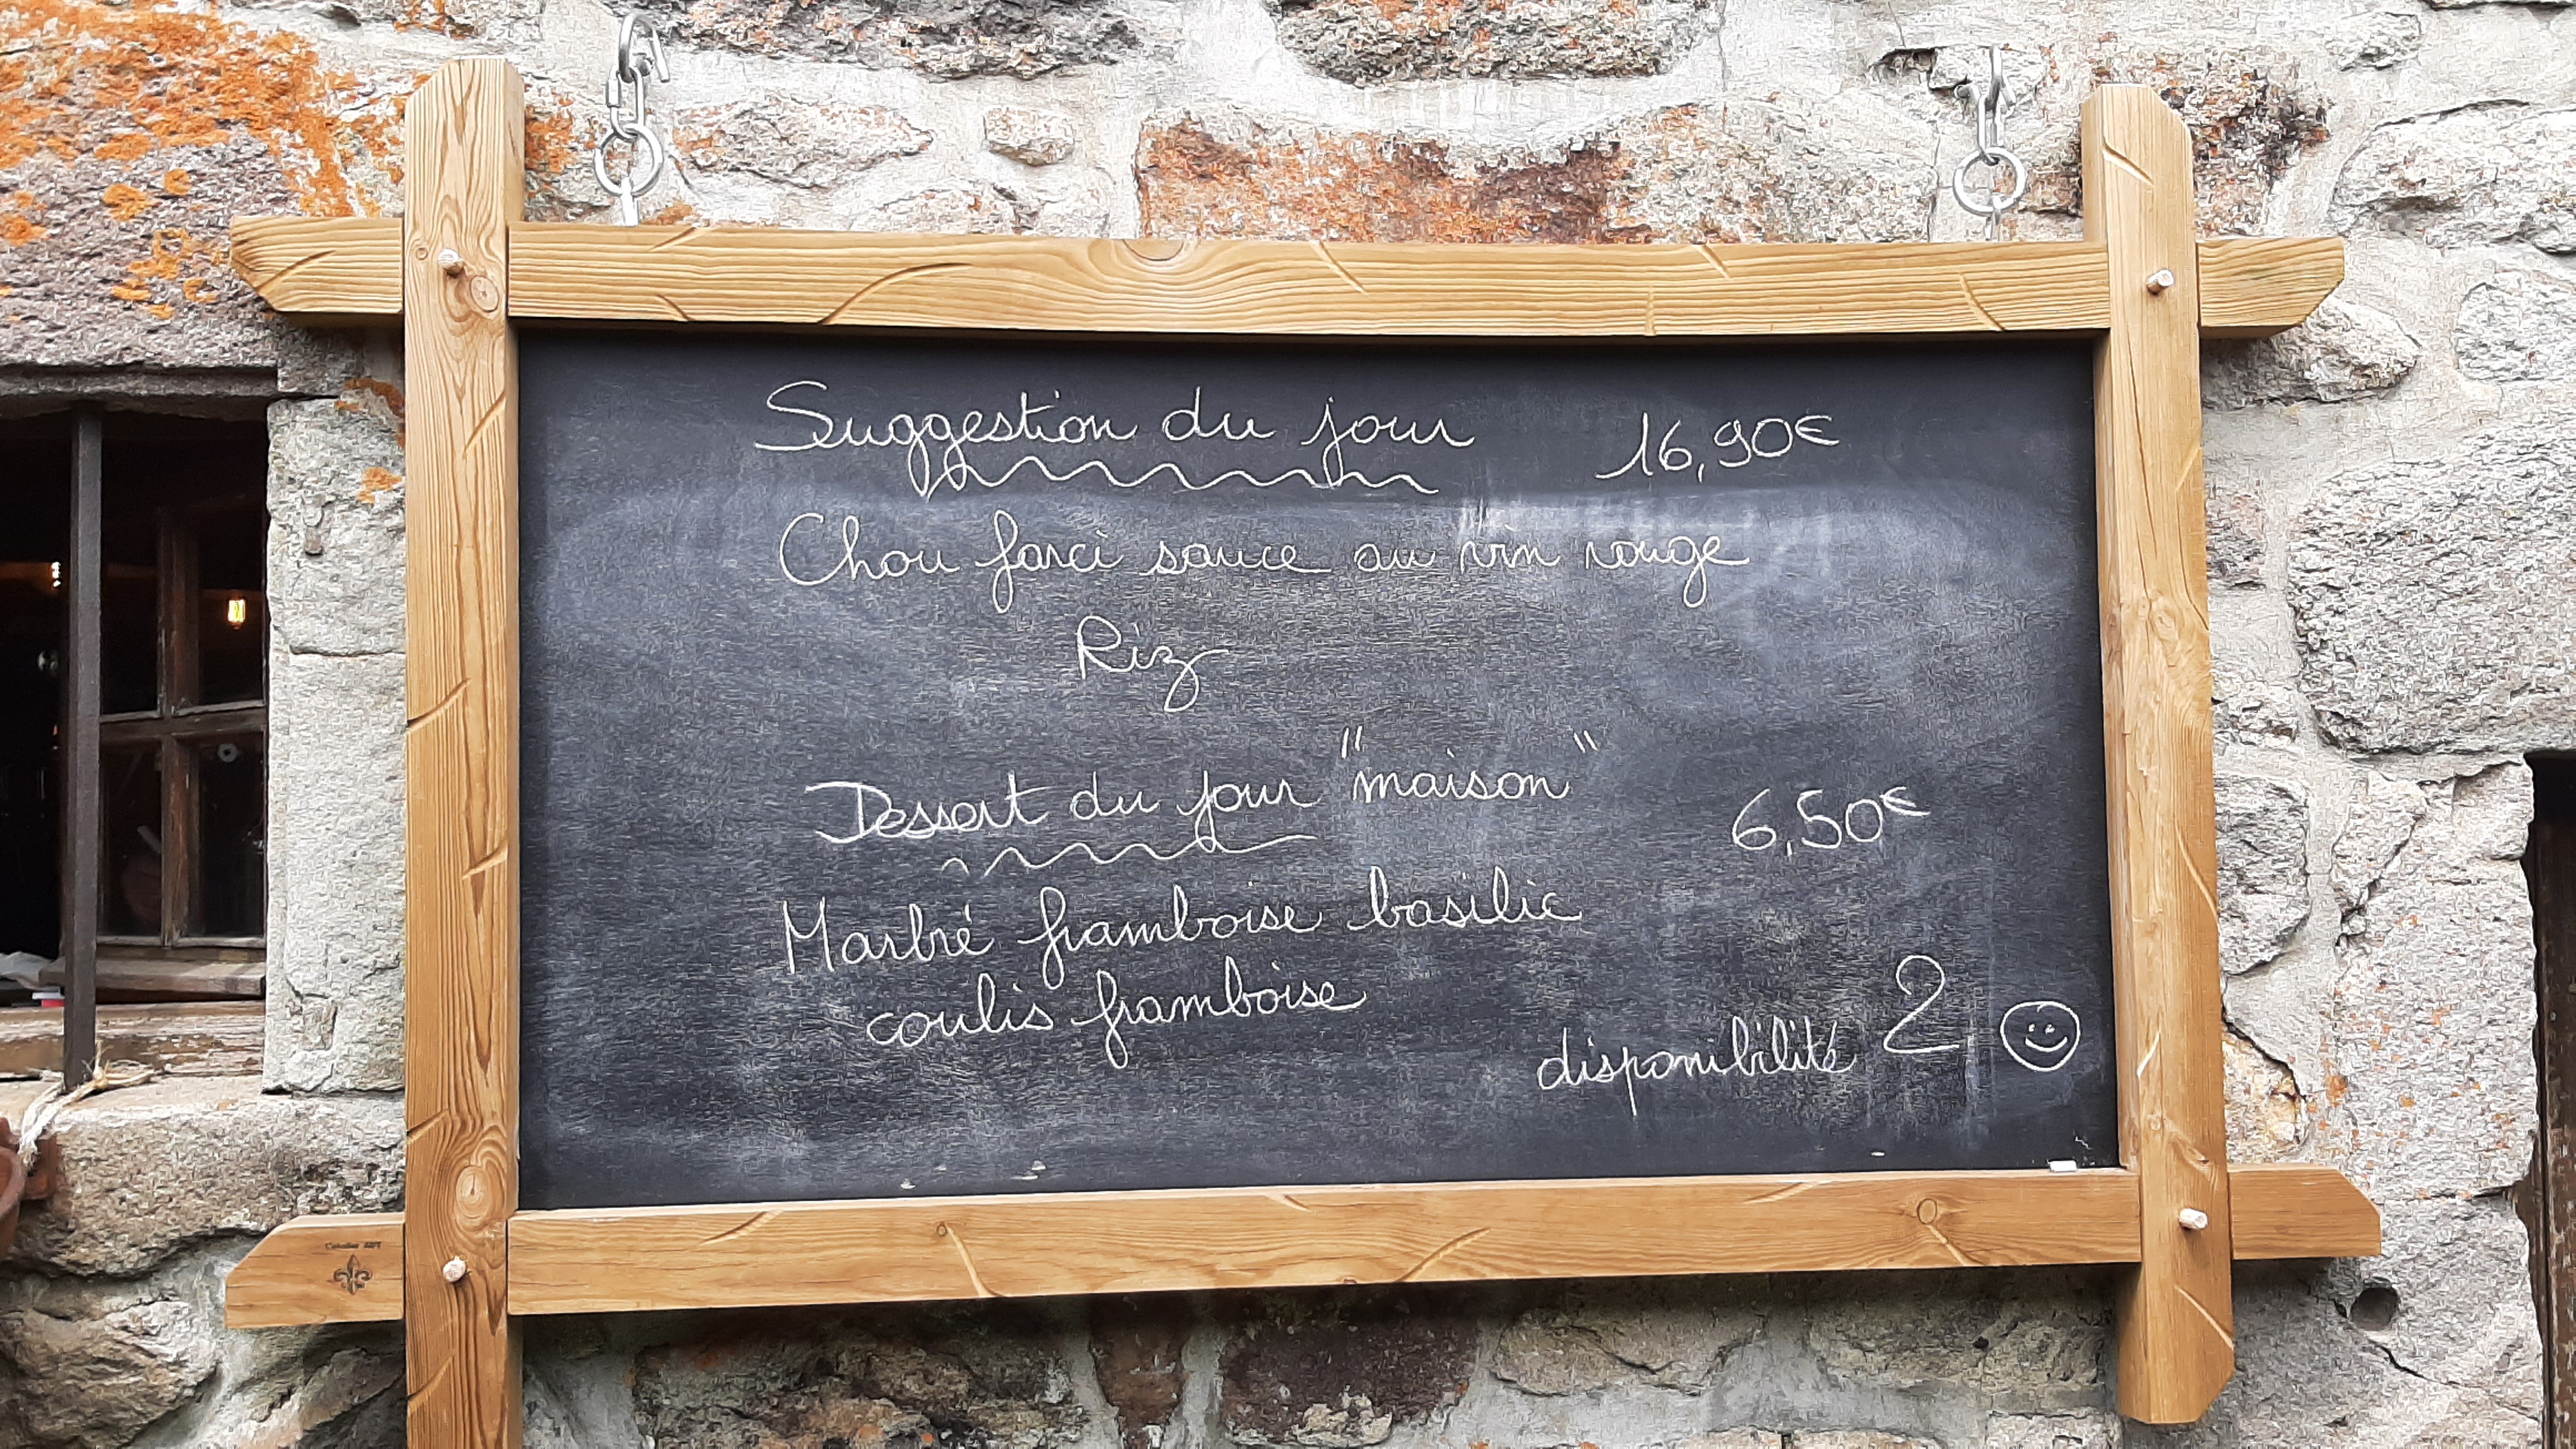 Suggestion du jour 16,90€
Chou farci sauce au vin rouge
Riz
Dessert du jour "maison" 6,50€
Marbré framboise basilic
coulis framboise
disponibilité 2